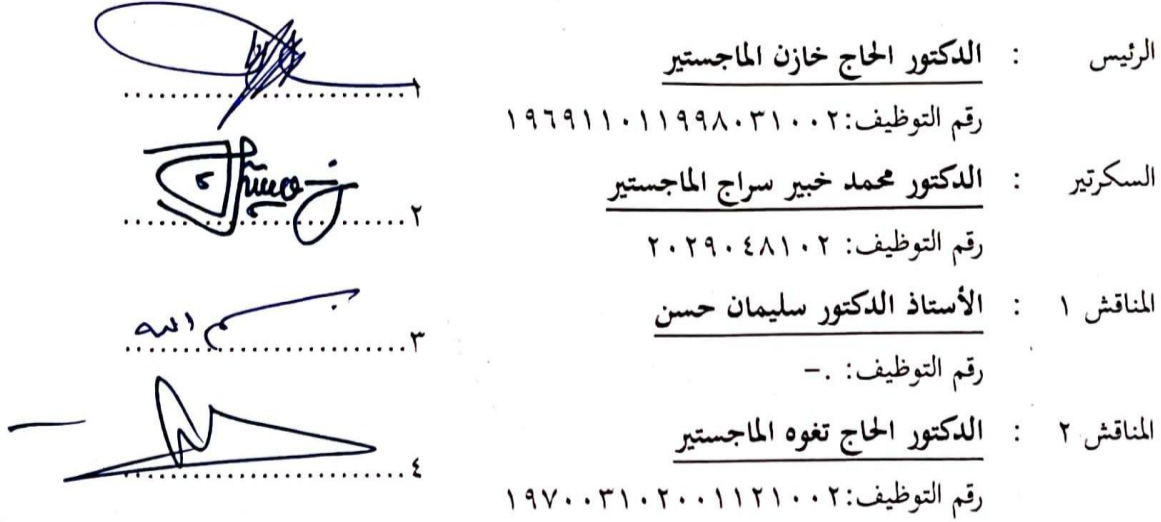 الرئيس : الدكتور الحاج خازن الماجستير
١....................
رقم التوظيف:١٩٦٩١١٠١١٩٩٨٠٣١٠٠٢
السكرتير : الدكتور محمد خبير سراج الماجستير
٢....................
رقم التوظيف: ٢٠٢٩٠٤٨١٠٢
المناقش ١ : الأستاذ الدكتور سليمان حسن
٣....................
رقم التوظيف: .-
المناقش ٢ : الدكتور الحاج تغوه الماجستير
٤....................
رقم التوظيف:١٩٧٠٠٣١٠٢٠٠١١٢١٠٠٢